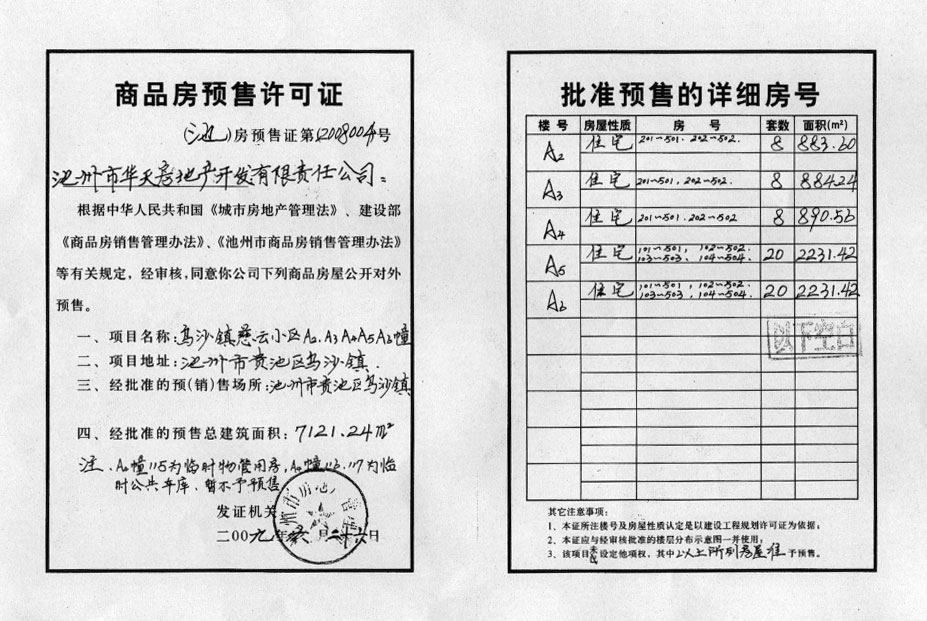 商品房预售许可证
(池)房预售证第(2008004)号
池州市华天房地产开发有限责任公司:
根据中华人民共和国《城市房地产管理法》、建设部
《商品房销售管理办法》、《池州市商品房销售管理办法》
等有关规定,经审核,同意你公司下列商品房屋公开对外
预售。
一、项目名称:乌沙镇慈云小区A2.A3A4A5A6幢
二、项目地址:池州市贵池区乌沙镇.
三、经批准的预(销)售场所:池州市贵池区乌沙镇
四、经批准的预售总建筑面积:7121.24m²
注.
幢115为临时物管用房,
幢116.117为临
时公共车库、暂不予预售
发证机关
二00九年 月二十六日
批准预售的详细房号
楼号 房屋性质 房号 套数 面积(m²)
A2 住宅 201~501.202~502. 8 883.60
A3 住宅 201~501,202~502. 8 884.24
A4 住宅 201~501.202~502 8 890.56
A5 住宅 101~501,102~502. 103~503,104~504. 20 2231.42
A6 住宅 101~501,102~502. 103~503,104~504. 20 2231.42
以下空白
其它注意事项:
1、本证所注楼号及房屋性质认定是以建设工程规划许可证为依据;
2、本证应与经审核批准的楼层分布示意图一并使用;
3、该项目 设定他项权,其中以上所列房屋准予预售。